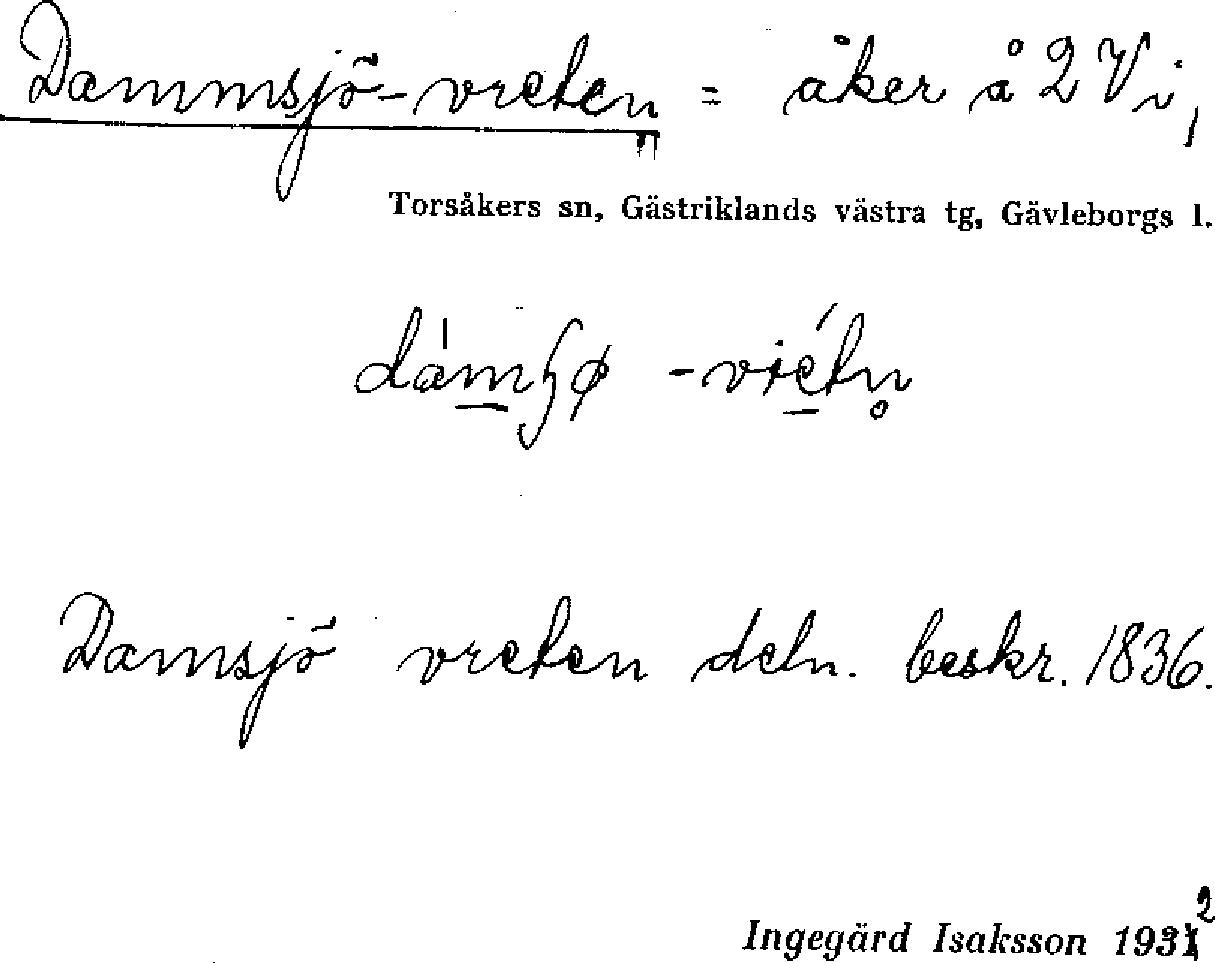 Dammsjö-vreten = åker å 2 Vi,
Torsåkers sn, Gästriklands västra tg, Gävleborgs l.
Damsjö vreten deln. beskr. 1836.
Ingegärd Isaksson 1932